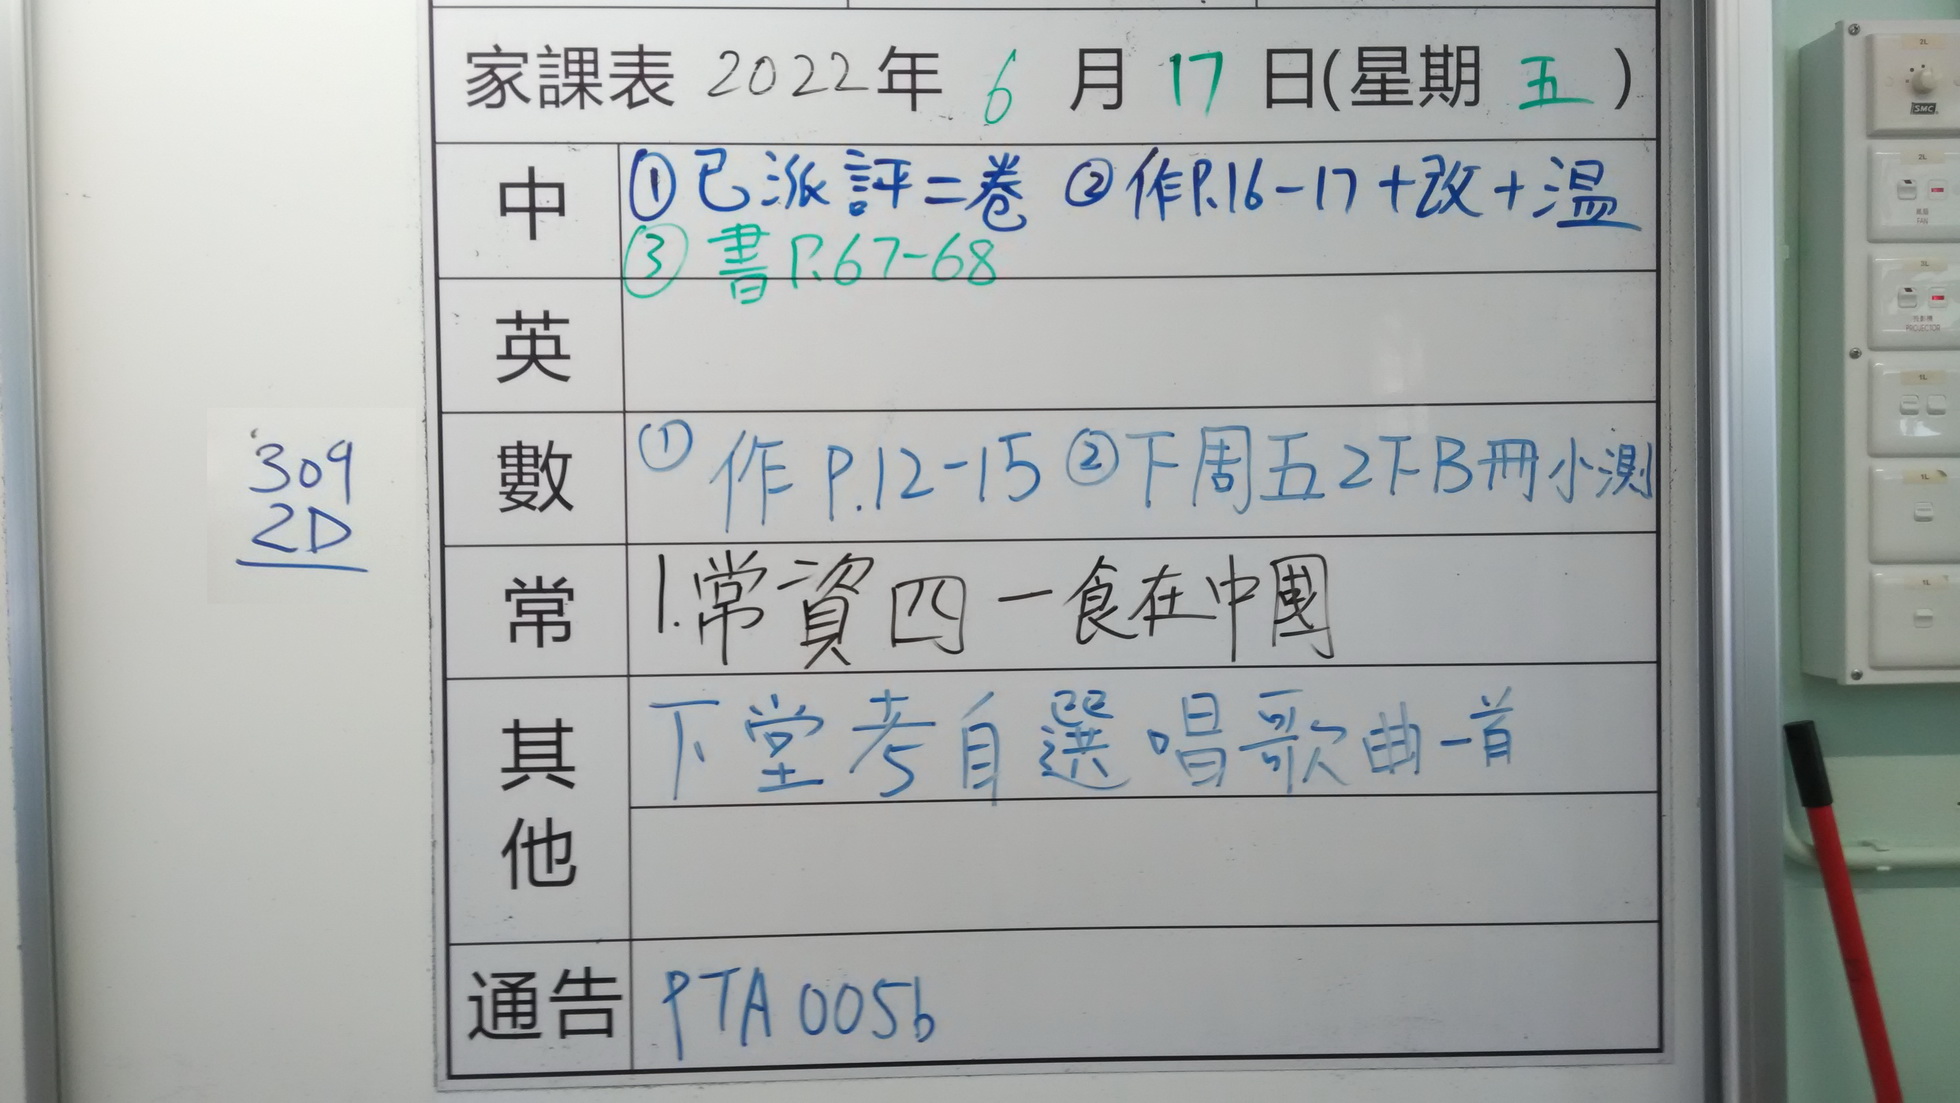 家課表 2022年 6 月 17 日(星期 五 )
中 ①已派評二卷 ②作P.16-17+改+温
③書P.67-68
英
數 ①作P.12-15 ②下周五2下B冊小測
309
2D
常 1.常資四一食在中國
其他 下堂考自選唱歌曲一首
通告 PTA005b
SMC
FAN
PROJECTOR